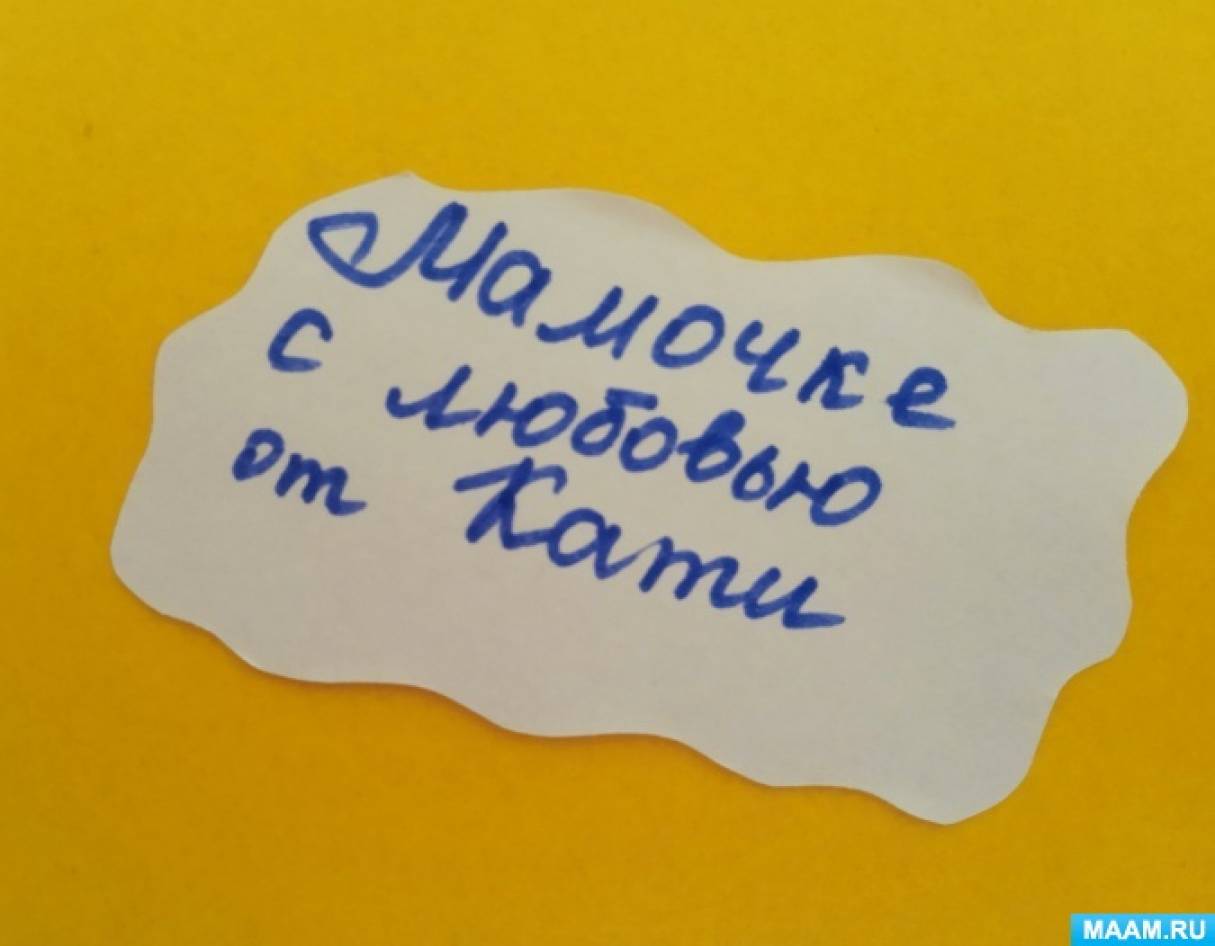 Мамочке
с любовью
от Кати
MAAM.RU